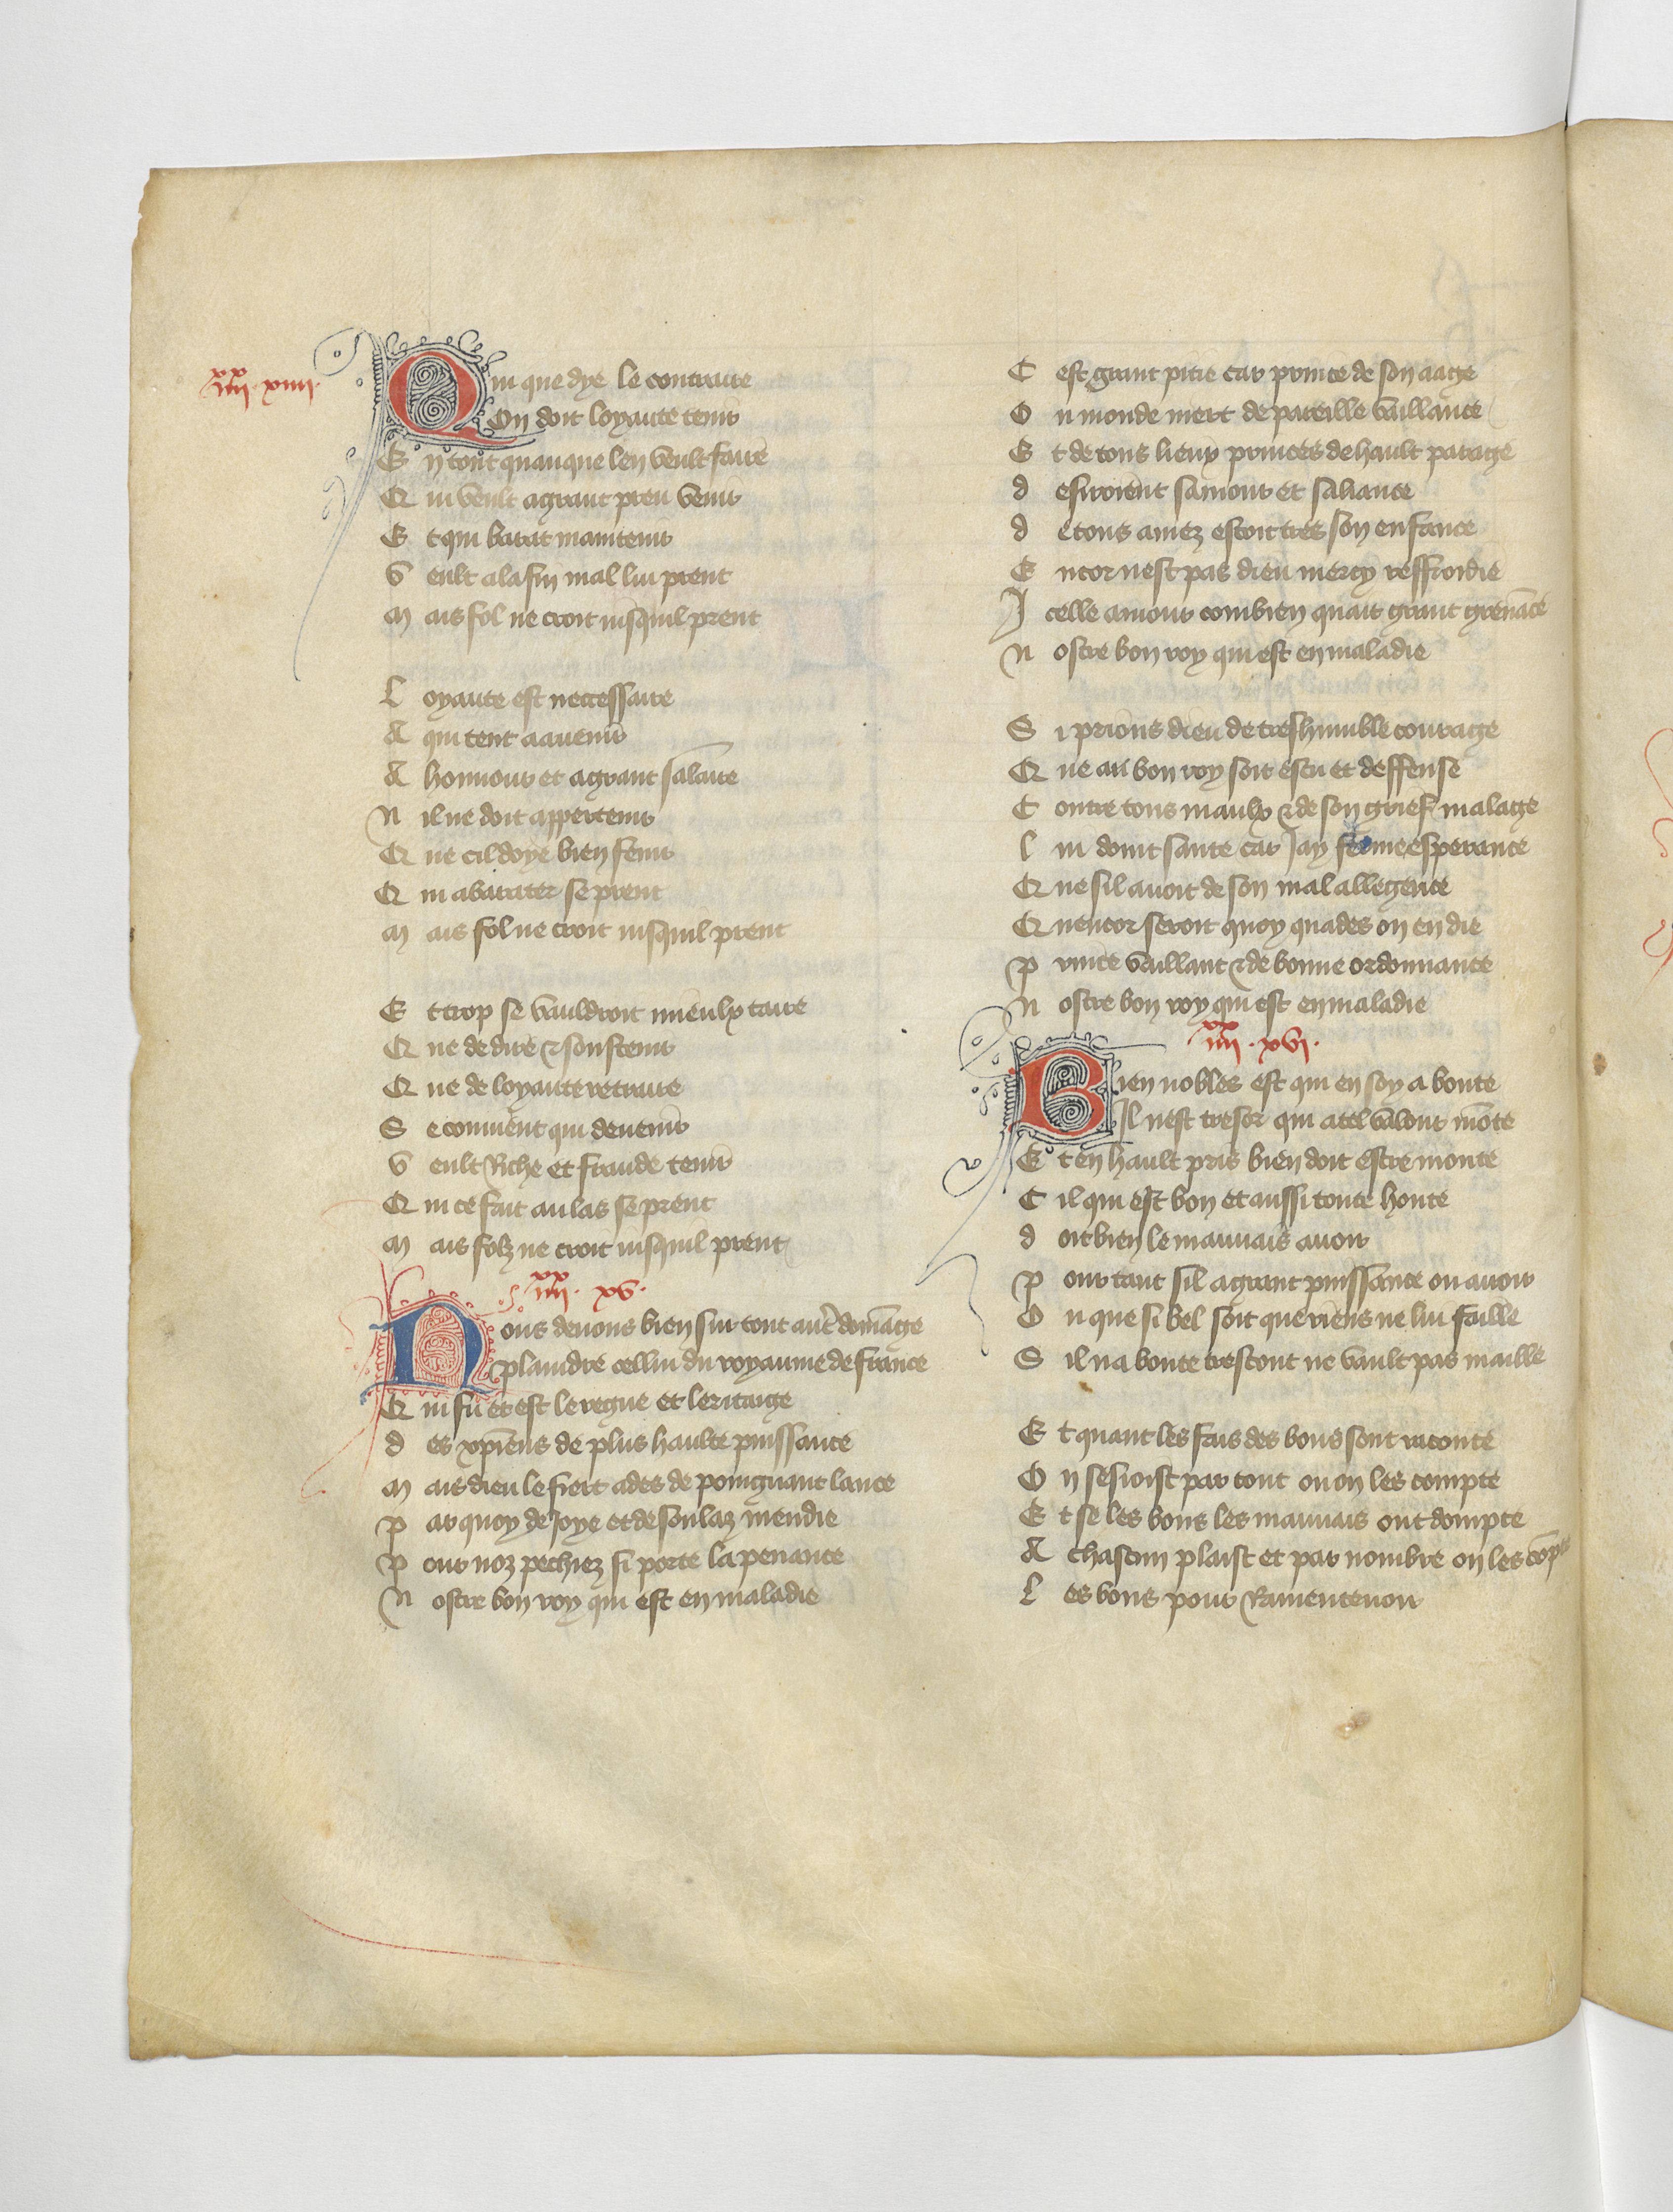 iiii xx xiiii.
Qui que dye le contraire
On doit loyaute tenir
En tout quanque len veult faire
Qui veult a grant preu venir
Et qui barat maintenir
Veult a la fin mal lui prent
Mais fol ne croit jusquil prent
Loyaute est neccessaire
A qui tent a avenir
A honnour et a grant salaire
Nil ne doit appertenir
Que cil doye bien fenir
Qui a barater se prent
Mais fol ne croit jusquil prent
Et trop se vauldroit mieulx taire
Que de dire & soustenir
Que de loyaute retraire
Se convient qui devenir
Veult Riche et fraude tenir
Qui ce fait au las se prent
Mais folz ne croit jusquil prent
iiii xx xv.
Nous devons bien sur tout autr̃ domãge
plaindre cellui du royaume de france
Qui fu et est le regne et leritaige
des xpiens de plus haulte puissance
Mais dieu le fiert ades de poingnant lance
par quoy de Joye et de soulaz mendie
pour noz pechiez si porte la penance
Nostre bon roy qui est en maladie
Cest grant pitie car prince de son aage
On monde niert de pareille vaillance
Et de tous lieux princes de hault parage
desiroient samour et saliance
de tous amez estoit tres son enfance
Encor nest pas dieu mercy reffroidie
Icelle amour combien quait grant grevãce
Nostre bon roy qui est en maladie
Si prions dieu de tres humble courage
Que au bon roy soit escu et deffense
Contre tous maulx & de son grief malage
lui doint sante car Jay ferme esperance
Que sil avoit de son mal allegence
Quencor seroit quoy quades on en die
prince vaillant & de bonne ordonnance
Nostre bon roy qui est en maladie
iiii xx xvi.
Bien nobles est qui en soy a bonte
Il nest tresor qui a tel valour mõte
Et en hault pris bien doit estre monte
Cil qui est bon et aussi toute honte
doit bien le mauvais avoir
pour tant sil a grant puissance ou avoir
On que si bel soit que riens ne lui faille
Sil na bonte trestout ne vault pas maille
Et quant les fais des bons sont raconte
On sesioist par tout ou on les compte
Et se les bons les mauvais ont dompte
A chascun plaist et par nombre on les cõpte
Les bons pour Ramentevoir